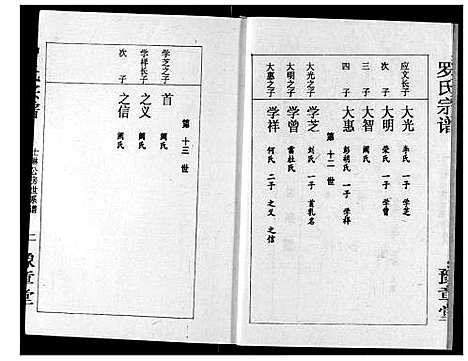 罗氏宗谱
应文长子 大光 李氏 一子 学芝
次子 大明 荣氏 一子 学曾
三子 大智 阙氏
四子 大惠 彭胡氏 一子 学祥
第十二世
大光之子 学芝 刘氏 一子 首乳名
大明之子 学曾 雷杜氏
大惠之子 学祥 何氏 二子 之义 之信
豫章堂
第十三世
学芝之子 首 阙氏
学祥长子 之义 阙氏
次子 之信 阙氏
公房世系谱
一
豫章堂